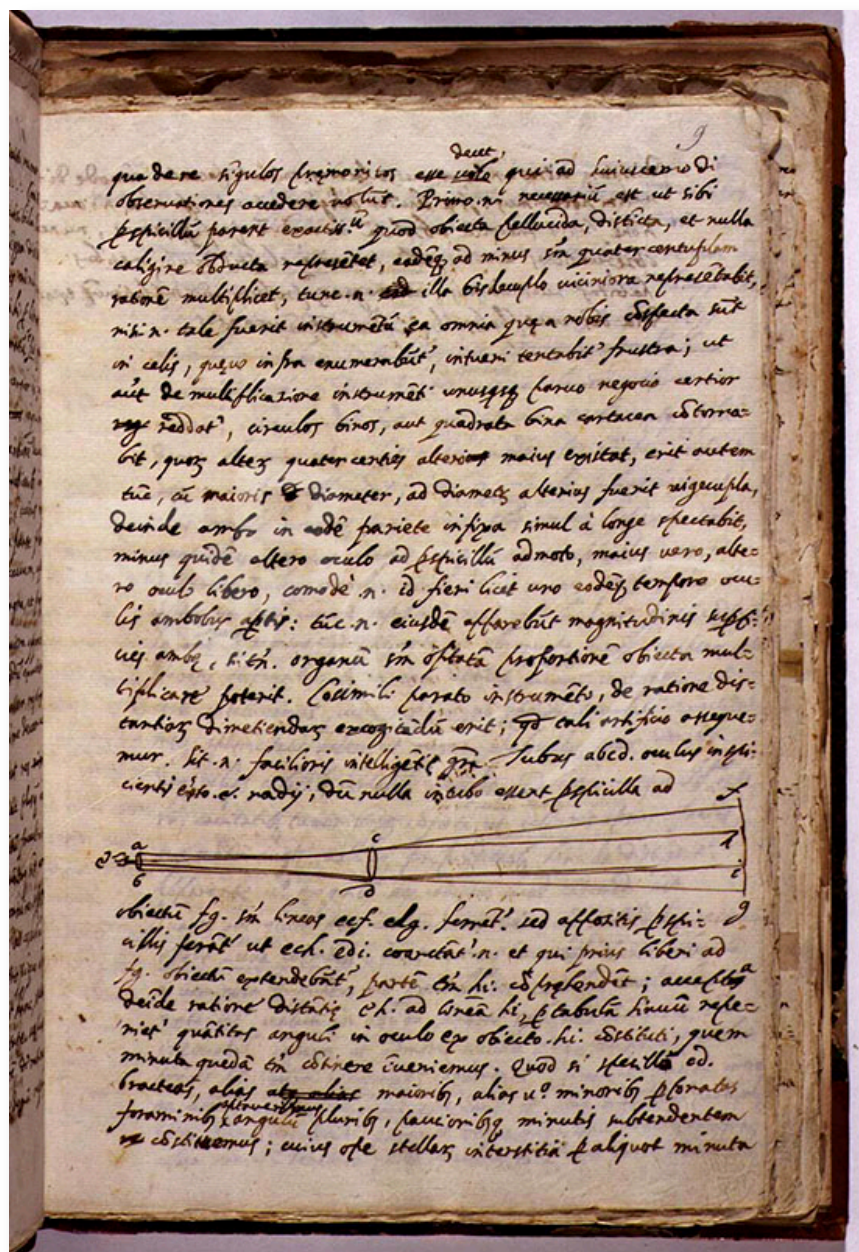 9
decet,
qua de re sigulos premonitos esse volo qui ad huiuscemodi
observationes accedere volut. Primo .n. necessariũ est ut sibi
pspicillũ parent exactiss.ũ quod obiecta pellucida, disticta, et nulla
caligine obducta represẽtet, eadẽq; ad minus sm̃ quatercentuplam
rationẽ multiplicet, tunc .n. illa bisdecuplo viciniora represẽtabit,
nisi .n. tale fuerit instrumẽtũ ea omnia que a nobis cõspecta sũt
in celis, queve infra enumerabũt', intueri tentabit' frustra; ut
aũt de multiplicazione instrumẽti unusqsq; parvo negocio certior
reddat', circulos binos, aut quadrata bina cartacea cõtorna=
bit, quoꝝ alteꝝ quatercenties alterius maius existat, erit autem
tũc, cũ maioris diameter, ad diametꝝ alterius fuerit vigecupla,
deinde ambo in eodẽ pariete infixa simul à longe spectabit,
minus quidẽ altero oculo ad pspicillũ admoto, maius vero, alte=
ro oculo libero, comodè .n. id fieri licet uno eodẽq; tempore ocu=
lis ambobus aptis: tũc .n. eiusdẽ apparebũt magnitudinis supfi=
cies ambe, si tñ. organũ sm̃ optatã proportionẽ obiecta mul=
tiplicare poterit. Cosimili parato instrumẽto, de ratione dis=
tantiaꝝ dimetiendaꝝ excogitãdũ erit; qd tali artificio asseque=
mur. Sit .n. facilioris intelligẽtię grã. Tubus abcd. oculus inspi=
cientis esto .e. radij, dũ nulla in tubo essent pspicilla ad
e a b c d f h i g
obiectũ fg. sm̃ lineas ecf. edg. ferrẽt'. sed appositis pspi=
cillis ferãt' ut ech. edi. coarctãt' .n. et qui prius liberi ad
fg. obiectũ extendebãt', partẽ tm̃ hi. cõprehendẽt; accepta
deĩde ratione distãtię eh. ad lineã hi, p tabulã sinuũ repe=
riet' quãtitas anguli in oculo ex obiecto .hi. cõstituti, quem
minuta quedã tm̃ cõtinere ĩveniemus. Quod si specillo cd.
bracteas, alias atq alias maioribꝫ, alias v.º minoribꝫ pforatas
aptaverimus
foraminibꝫ angulũ pluribꝫ, paucioribꝫq minutis subtendentem
cõstituemus; cuius ope stellaꝝ interstitia p aliquot minuta